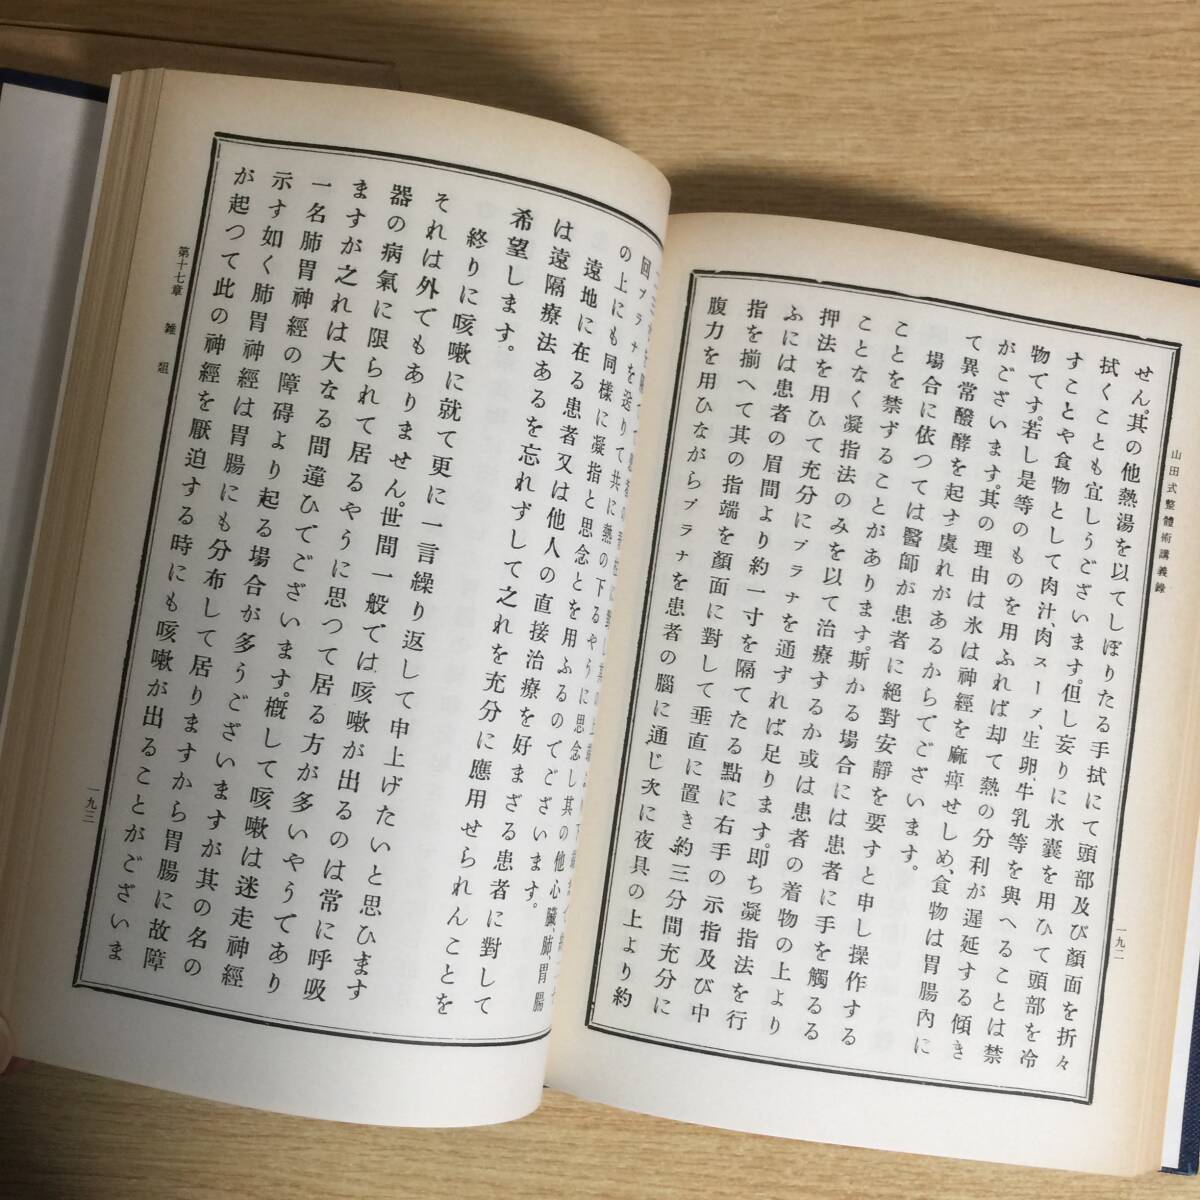 山田式整體術講義錄
一九二
せん。其の他熱湯を以てしぼりたる手拭にて頭部及び顏面を折々
拭くことも宜しうございます。但し妄りに氷囊を用ひて頭部を冷
すことや食物として肉汁、肉スープ、生卵、牛乳等を與へることは禁
物です。若し是等のものを用ふれば却て熱の分利が遅延する傾き
がございます。其の理由は氷は神經を麻痺せしめ、食物は胃腸內に
て異常醱酵を起す虞れがあるからでございます。
場合に依つては醫師が患者に絕對安靜を要すと申し操作する
ことを禁ずることがあります。斯かる場合には患者に手を觸るる
ことなく凝指法のみを以て治療するか或は患者の着物の上より
押法を用ひて充分にプラナを通ずれば足ります。即ち凝指法を行
ふには患者の眉間より約一寸を隔てたる點に右手の示指及び中
指を揃へて其の指端を顏面に對して垂直に置き約三分間充分に
腹力を用ひながらプラナを患者の腦に通じ次に夜具の上より約
回プラナを送りて共に熱の下るやうに思念し其の他心臟、肺、胃腸
の上にも同樣に凝指と思念とを用ふるのでございます。
遠地に在る患者又は他人の直接治療を好まざる患者に對して
は遠隔療法あるを忘れずして之れを充分に應用せられんことを
希望します。
終りに咳嗽に就て更に一言繰り返して申上げたいと思ひます
それは外でもありません。世間一般では咳嗽が出るのは常に呼吸
器の病氣に限られて居るやうに思つて居る方が多いやうであり
ますが之れは大なる間違ひでございます。概して咳嗽は迷走神經
一名肺胃神經の障碍より起る場合が多うございますが其の名の
示す如く肺胃神經は胃腸にも分布して居りますから胃腸に故障
が起つて此の神經を厭迫する時にも咳嗽が出ることがございま
第十七章 雜俎
一九三